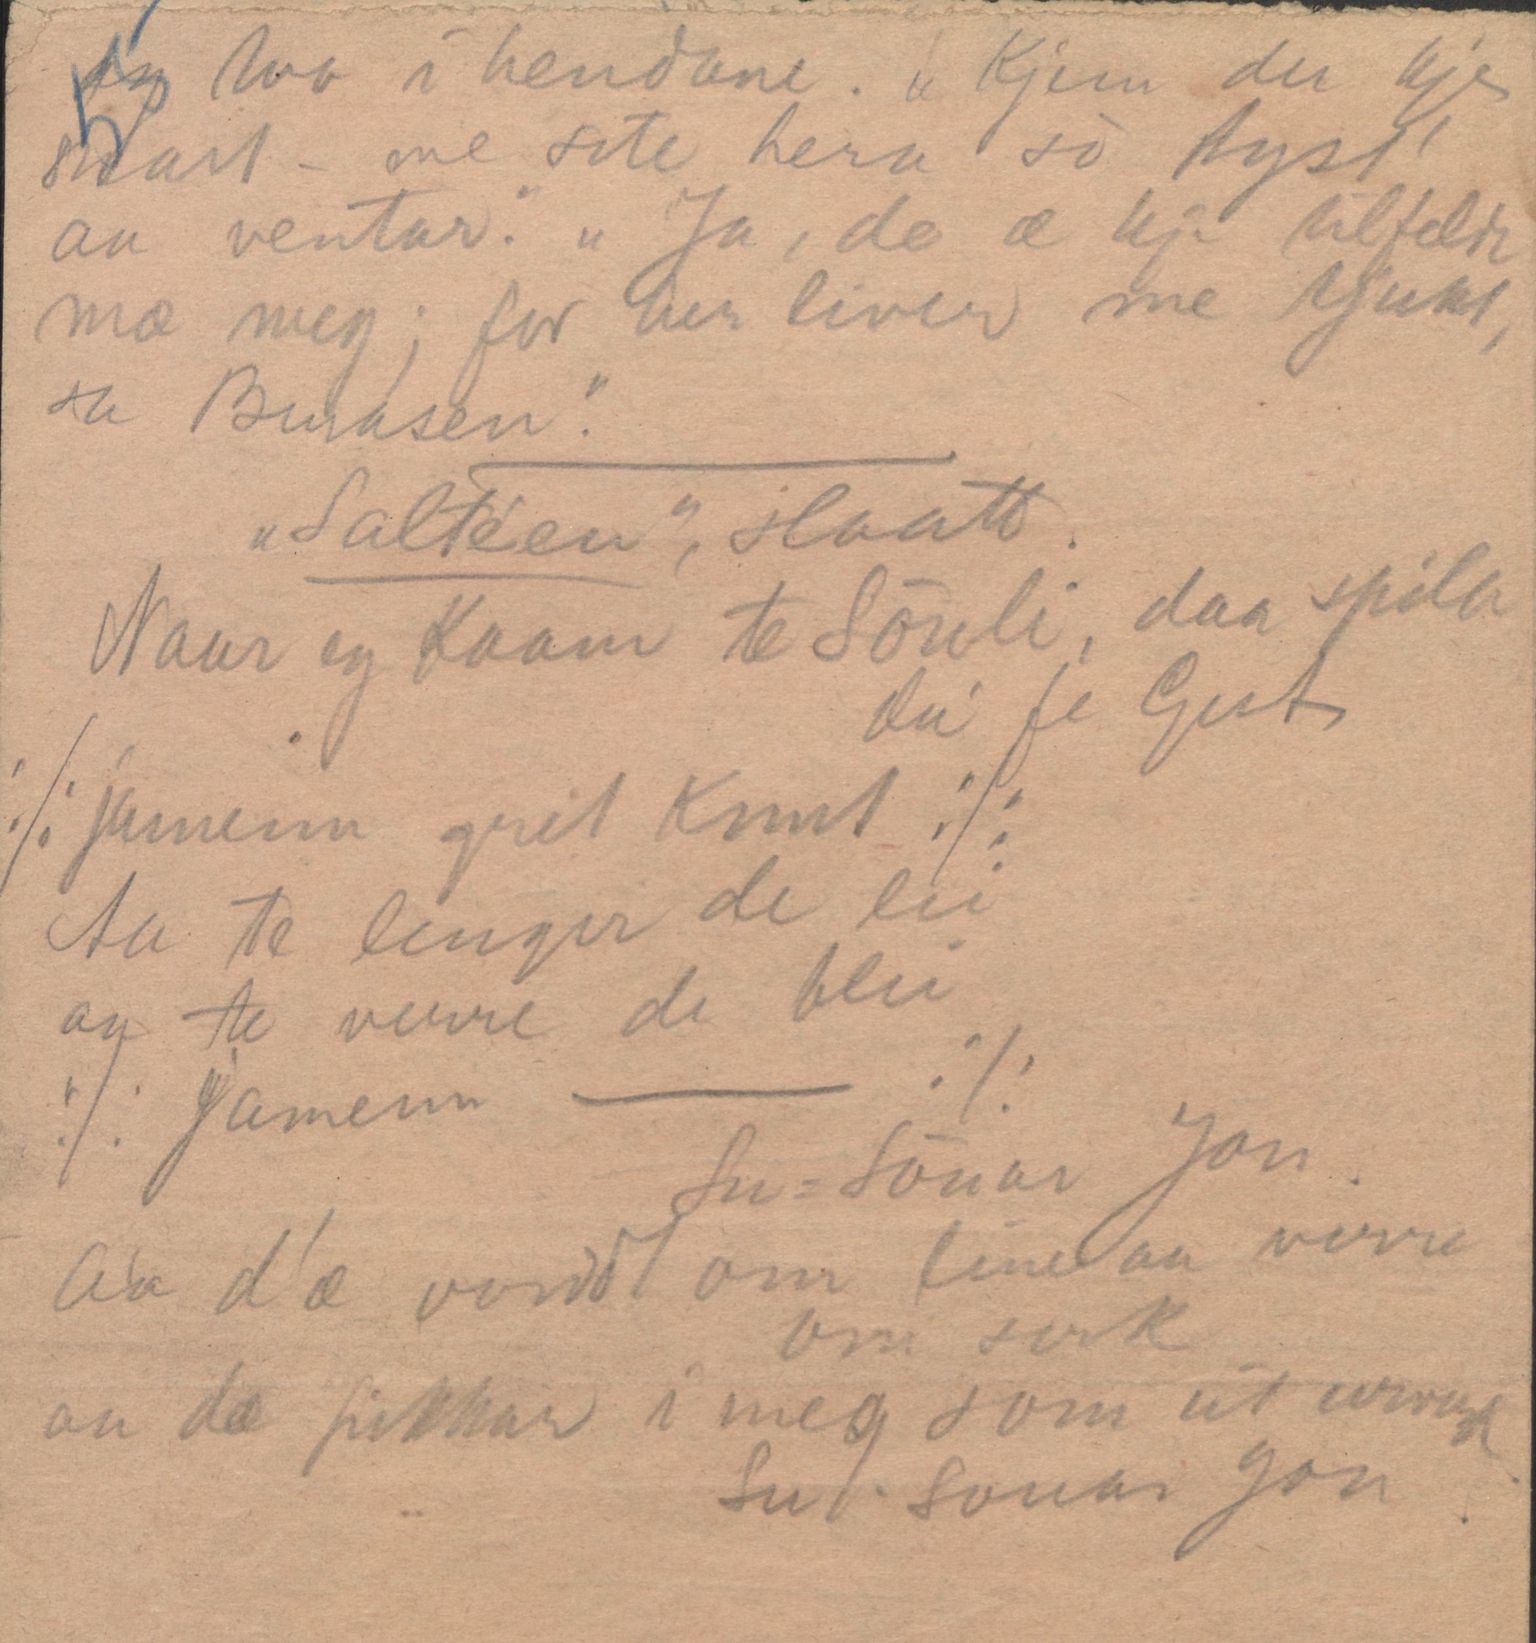 i hendane. "Kjem du kje
snart - me site hera so tyst
aa ventar." "Ja, de æ kje tilfelde
mæ meg; for her liver me
sa Bunasen."
"Saltéen", slaatt.
Naar eg kaam te Sönli, daa spila
fe Gest
:/: jamenn gret Knut :/:
Aa te lenger de lei
aa te verre de blei
:/: Jamenn ——— :/:
Su-Sönar Jon.
Aa d'æ vondt om line aa verre
om serk
aa dæ pikkar i meg som eit
Su-Sonar Jon.